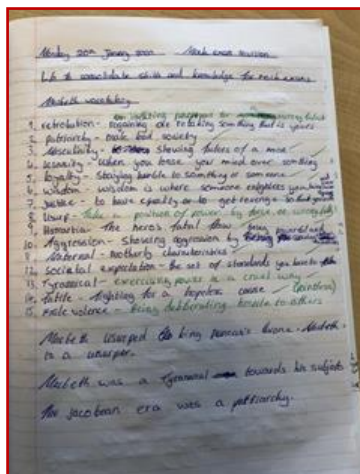 Monday 20th January 2020 Mock exam revision
Lf: to consolidate skills and knowledge for mock exams
Macbeth vocabulary
on inflicting punishment for
1. retribution - regaining or retaking something that is yours
2. patriarchy - male led society
3. Masculinity - showing features of a man
4. insanity - when you loose your mind over somthing
5. loyalty - staying humble to something or someone
6. wisdom - wisdom is where someone enlightens you
7. Justice - to have equality or to get revenge
8. Usurp - Take a position of power by force or wrongfully
9. Hamartia - The heros fatal flaw
10. Aggression - Showing aggression by being powerful and
Maternal - motherly characteristics
12. societal expectation - the set of standards you have to
13. Tyrannical - exercising power in a cruel way
14. futile - fighting for a hopeless cause (pointless)
15. male violence - being deliberately hostile to others
Macbeth usurped king Duncan's throne. Macbeth
is a usurper.
Macbeth was a Tyrannical towards his subjects
The jacobean era was a patriarchy.